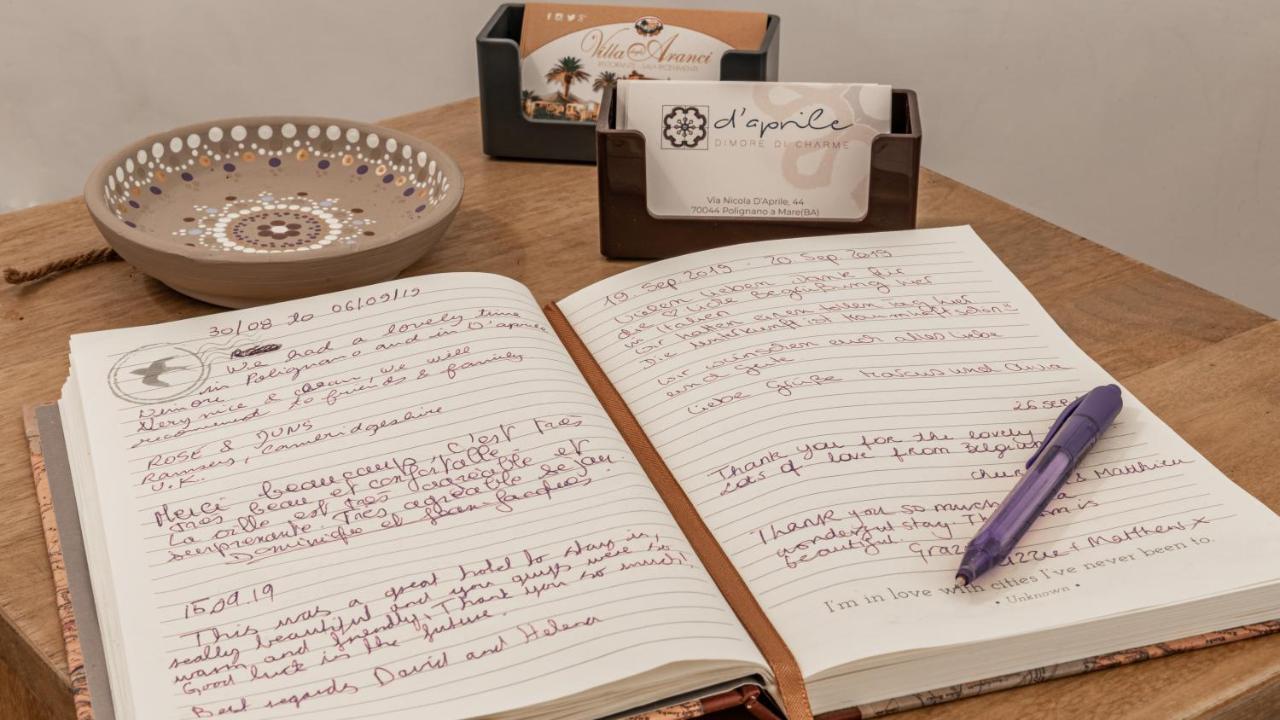 Villa degli Aranci
RISTORANTE - SALA RICEVIMENTI
d'aprile
DIMORE DI CHARME
Via Nicola D'Aprile, 44
70044 Polignano a Mare(BA)
30/08 to 06/09/19
We had a lovely time
in Polignano and in D'aprile
Dimore.
Very nice & clean. We will
recommend to friends & family
ROSE & JUNS
Ramsey, Cambridgeshire
U.K.
Merci beaucoup, c'est très
très beau et confortable.
La ville est très agréable et
surprenante. Très agréable séjour
Dominique et Jean Jacques
15.09.19
This was a great hotel to stay in,
really beautiful and you guys were so
warm and friendly. Thank you so much!
Good luck in the future.
Best regards David and Helena
19. Sep 2019 - 20 Sep 2019
Vielen lieben Dank für
die ♡ liche Begrüßung hier
Wir hatten einen tollen Tag hier
Die Unterkunft ist traumhaft schön
Wir wünschen euch alles liebe
und gute
Liebe Grüße Marcus und
26 sep
Thank you for the lovely
Lots of love from Belgium
& Matthieu
Thank you so much
wonderful stay. The is
beautiful. + Matthew x
I'm in love with cities I've never been to.
• Unknown •